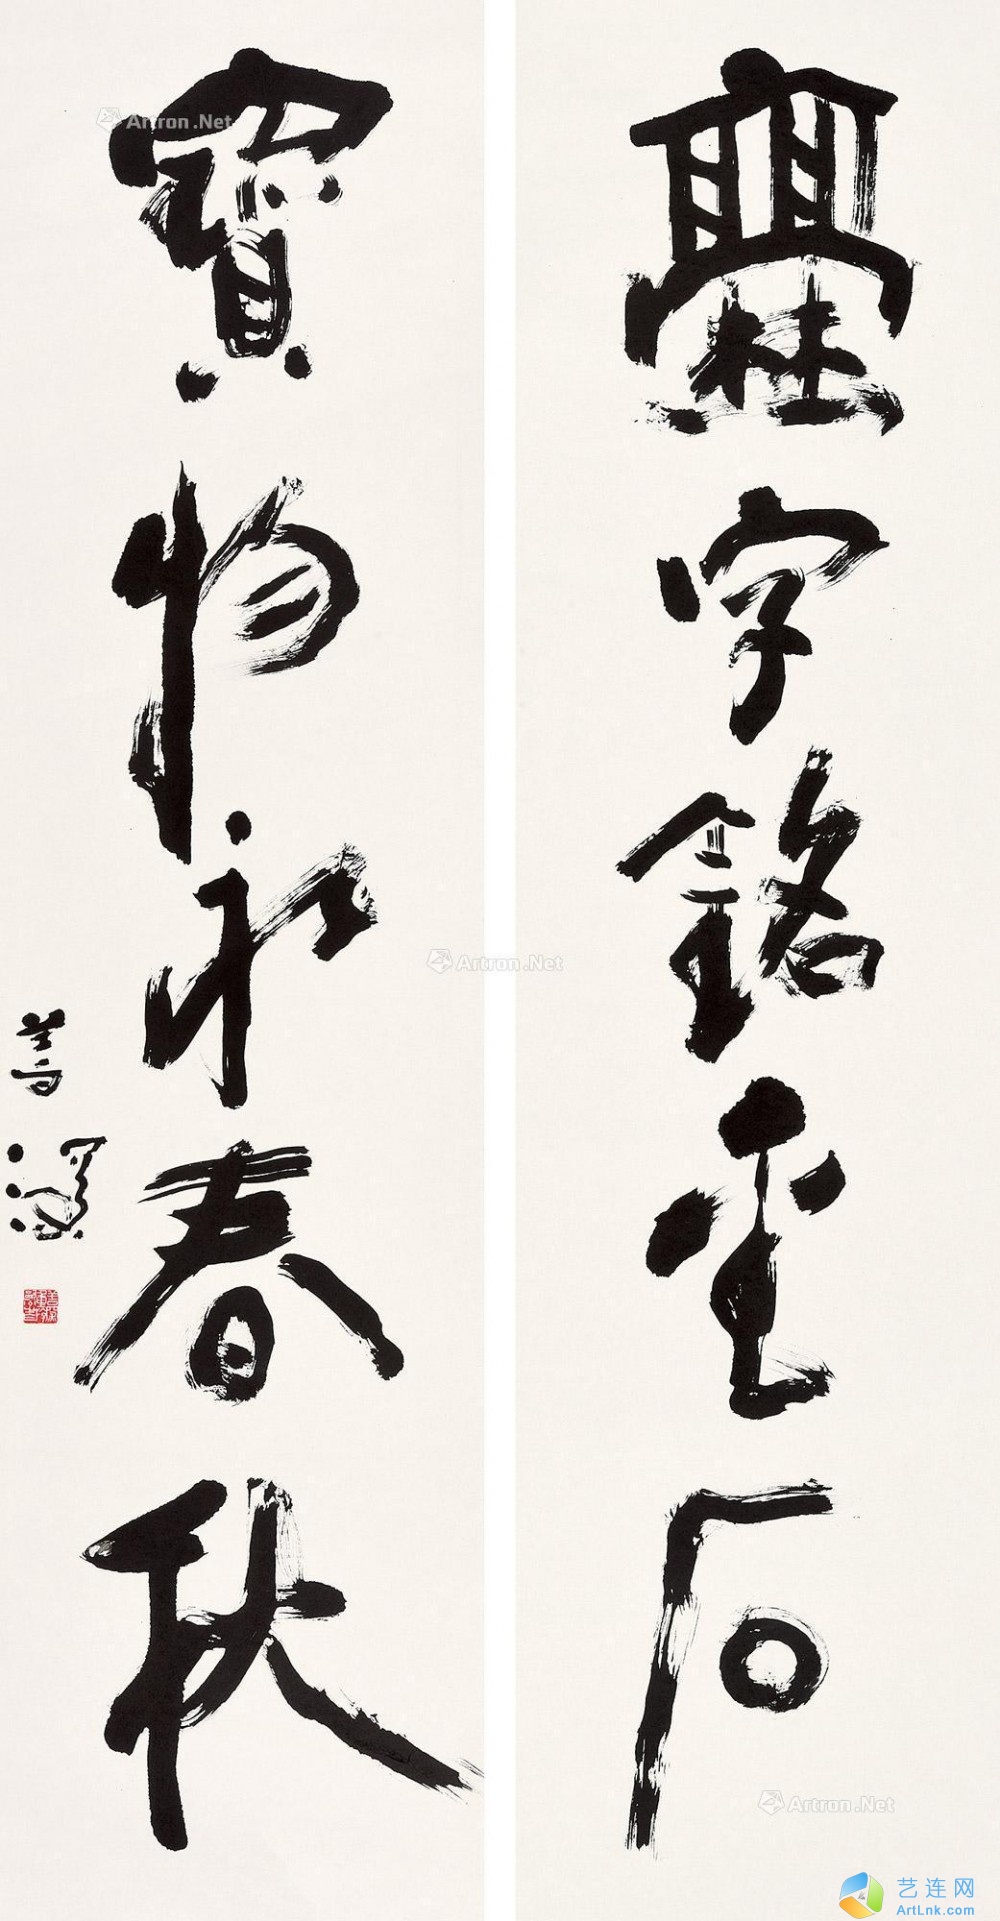 爨字銘金石
寶物永春秋
善深
Artron.Net
Artron.Net
Artron.Net
艺连网
ArtLnk.com